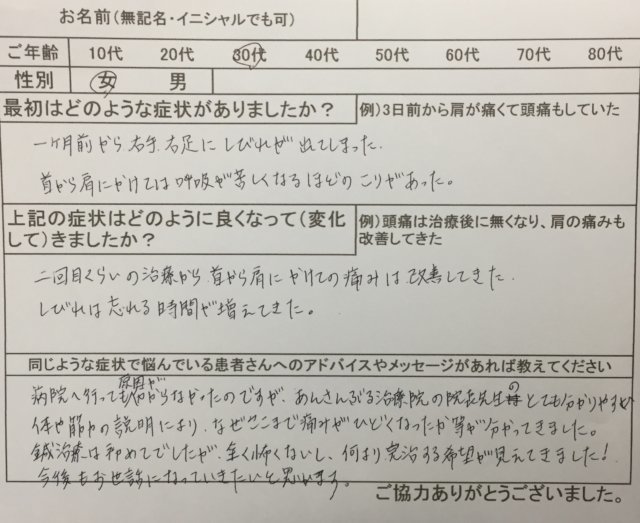 お名前(無記名・イニシャルでも可)
ご年齢 10代 20代 30代 40代 50代 60代 70代 80代
性別 女 男
最初はどのような症状がありましたか？ 例)3日前から肩が痛くて頭痛もしていた
一ヶ月前から右手右足にしびれが出てしまった.
首から肩にかけては呼吸が苦しくなるほどのこりがあった。
上記の症状はどのように良くなって(変化して)きましたか？ 例)頭痛は治療後に無くなり、肩の痛みも改善してきた
二回目くらいの治療から首から肩にかけての痛みは改善してきた.
しびれは忘れる時間が増えてきた。
同じような症状で悩んでいる患者さんへのアドバイスやメッセージがあれば教えてください
病院へ行っても原因がわからなかったのですが、あんさんぶる治療院の院長先生のとても分かりやすい
体や筋肉の説明により、なぜここまで痛みがひどくなったか等が分かってきました。
鍼治療は初めてでしたが、全く怖くないし、何より完治する希望が見えてきました！
今後もお世話になっていきたいと思います。
ご協力ありがとうございました。